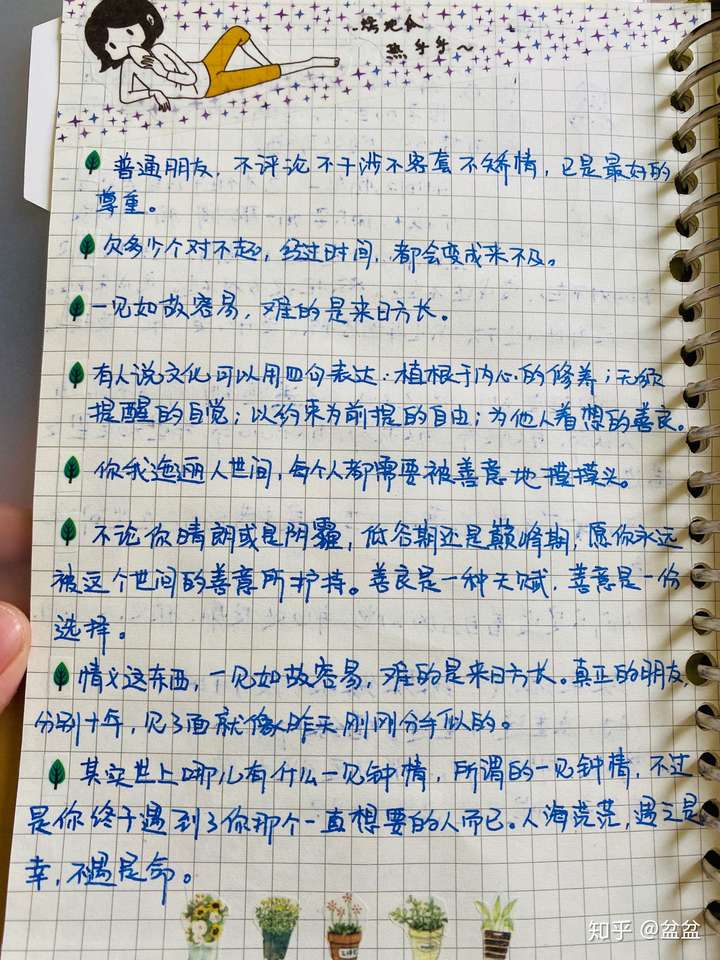 ..烤地瓜
热乎乎～
普通朋友，不评论不干涉不客套不矫情，已是最好的
尊重。
欠多少个对不起，经过时间，都会变成来不及。
一见如故容易，难的是来日方长。
有人说文化可以用四句表达：植根于内心的修养；无须
提醒的自觉；以约束为前提的自由；为他人着想的善良。
你我迤逦人世间，每个人都需要被善意地摸摸头。
不论你晴朗或是阴霾，低谷期还是巅峰期，愿你永远
被这个世间的善意所护持。善良是一种天赋，善意是一份
选择。
情义这东西，一见如故容易，难的是来日方长。真正的朋友，
分别十年，见了面就像昨天刚刚分手似的。
其实世上哪儿有什么一见钟情，所谓的一见钟情，不过
是你终于遇到了你那个一直想要的人而已。人海茫茫，遇之是
幸，不遇是命。
知乎 @盆盆